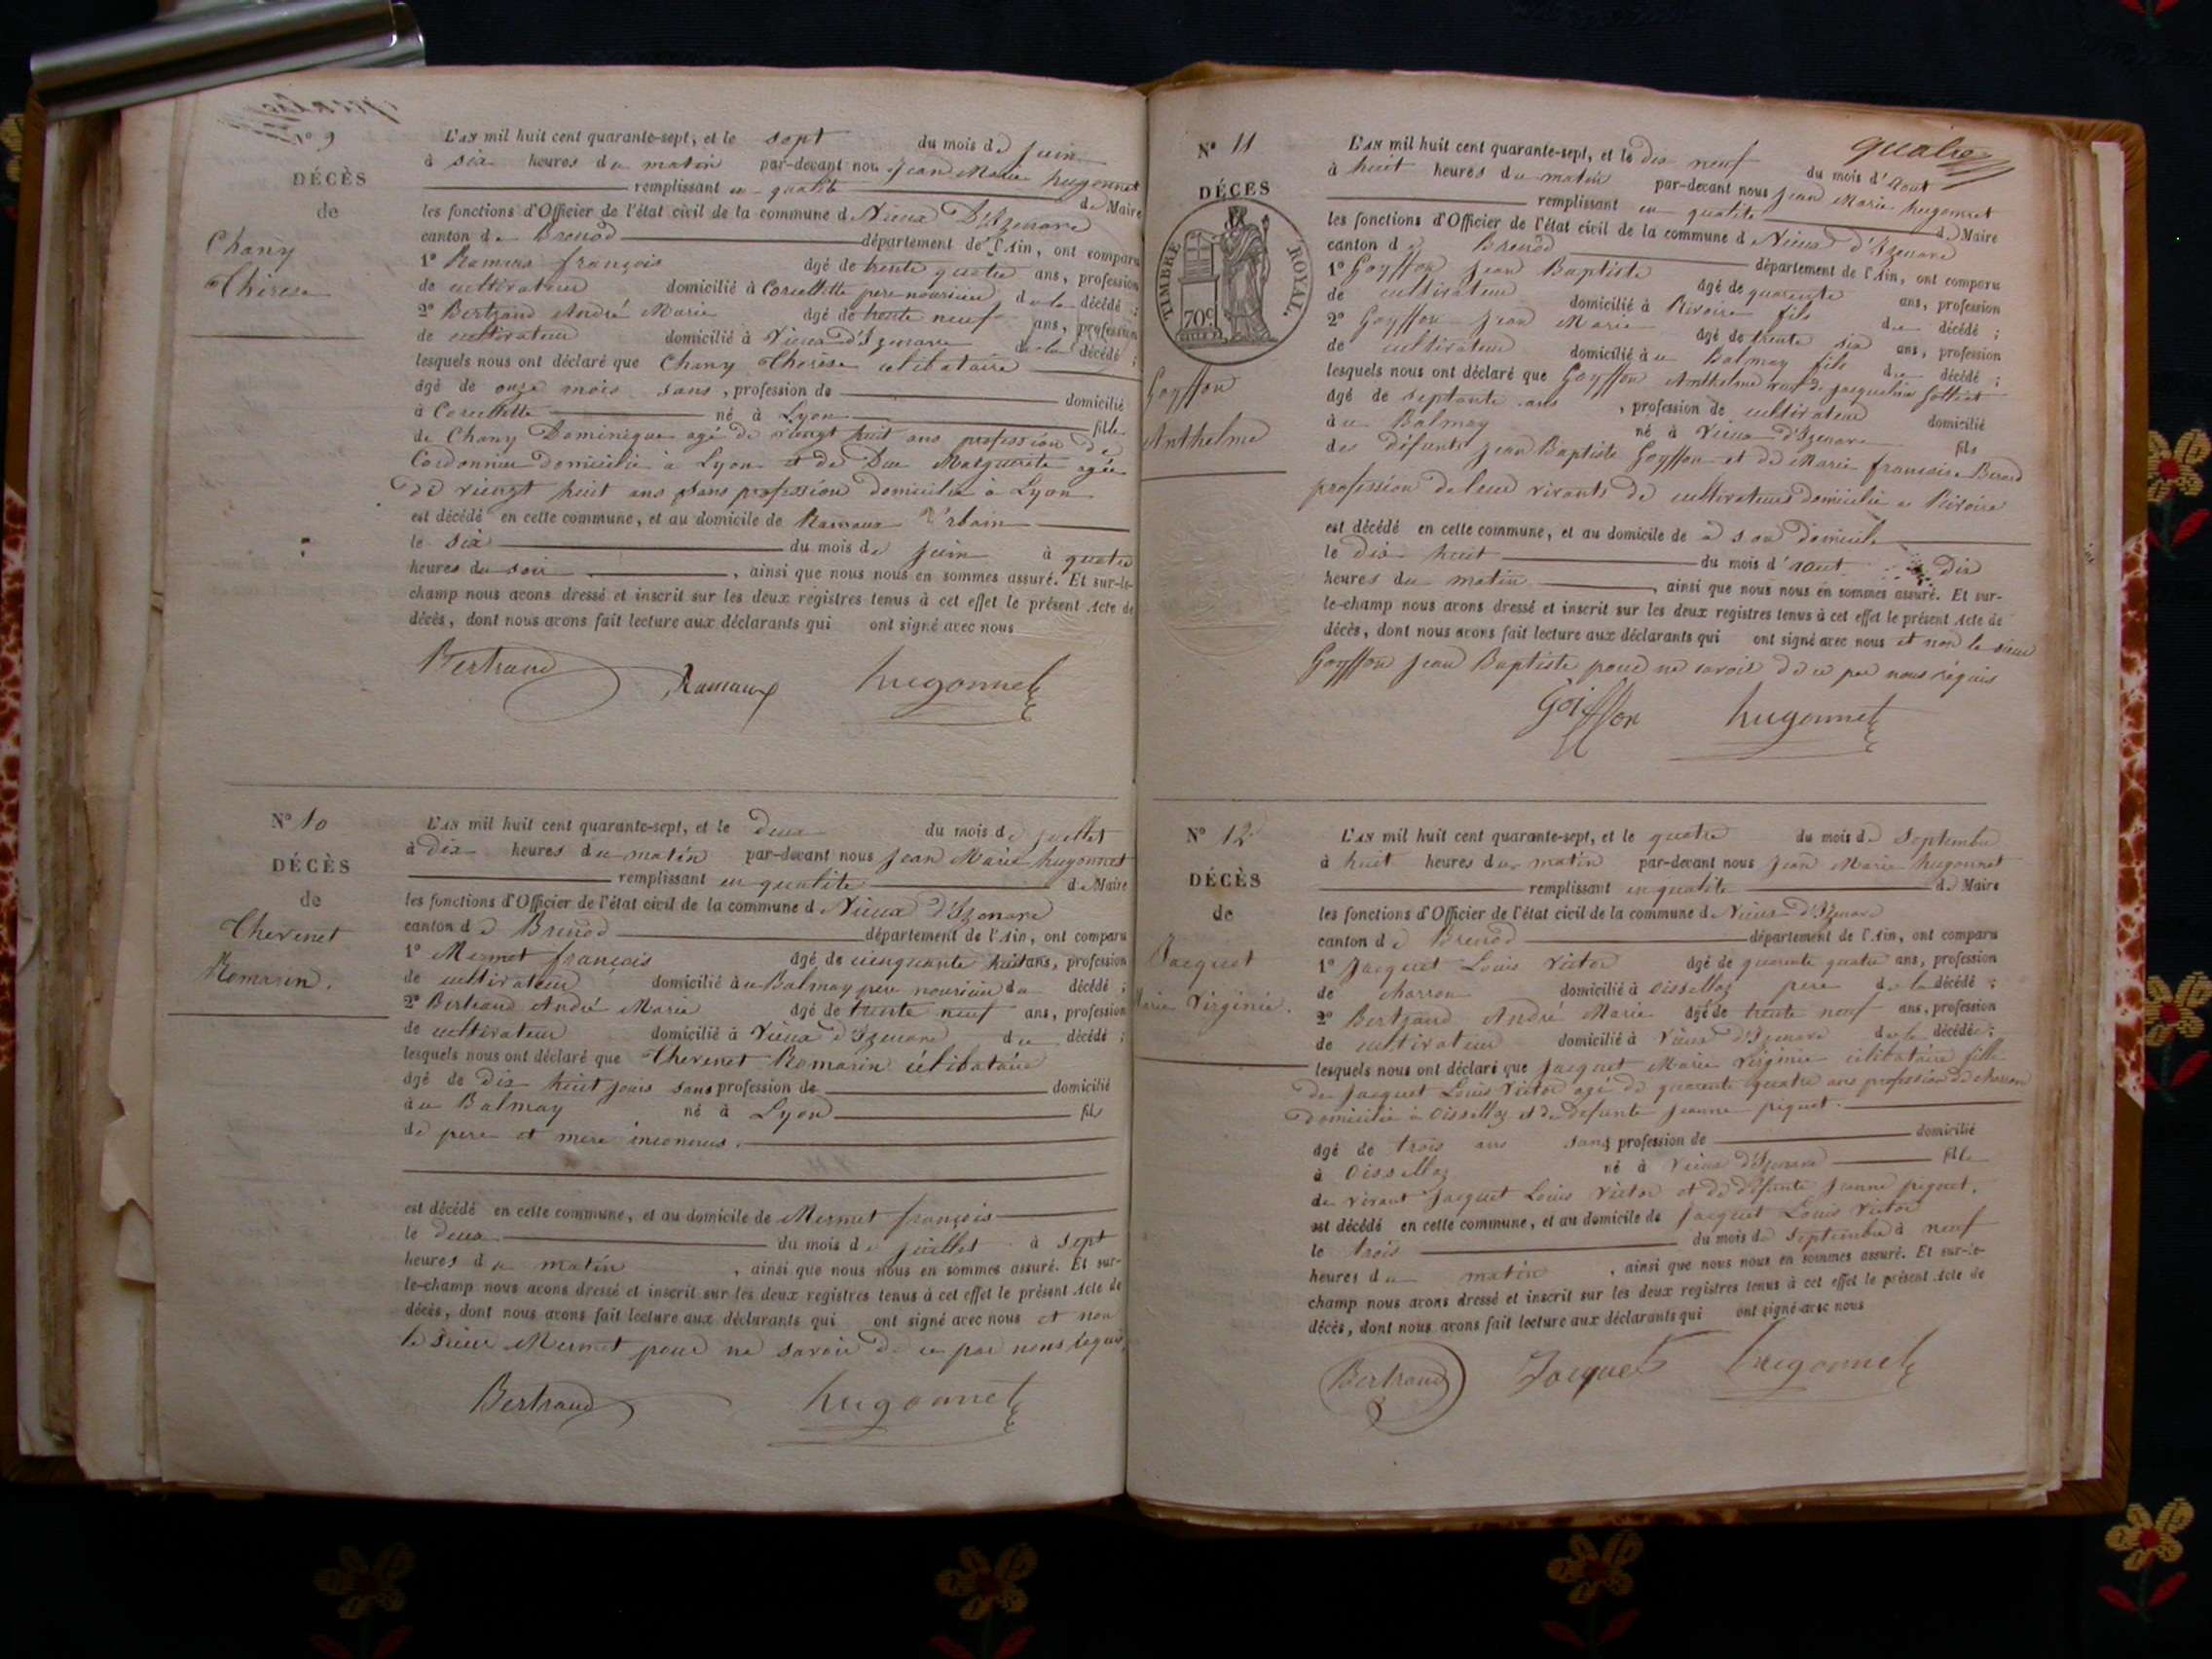 N° 9
DÉCÈS
de
Chany
Thérèse
L'AN mil huit cent quarante-sept, et le sept du mois de juin
à six heures du matin par-devant nou Jean Marie hugonnet
remplissant en qualité de Maire
les fonctions d'Officier de l'état civil de la commune d Vieux D'Izenave
canton de Brenod département de l'Ain, ont comparu
1° Ramaux françois âgé de trente quatre ans, profession
de cultivateur domicilié à Corcellette pere nouricier de la décédé ;
2° Bertrand André Marie âgé de trente neuf ans, profession
de cultivateur domicilié à Vieux d'Izenave de la décédé ;
lesquels nous ont déclaré que Chany Thérèse célibataire
âgé de onze mois sans, profession de domicilié
à Corcellette né à Lyon fille
de Chany Dominique agé de vingt huit ans profession de
Cordonnier domicilié à Lyon et de Marguerite agée
de vingt huit ans sans profession domicilié à Lyon
est décédé en cette commune, et au domicile de Ramaux Urbain
le six du mois de juin à quatre
heures du soir, ainsi que nous nous en sommes assuré. Et sur-le-
champ nous avons dressé et inscrit sur les deux registres tenus à cet effet le présent Acte de
décès, dont nous avons fait lecture aux déclarants qui ont signé avec nous
Bertrand Ramaux hugonnet
N° 10
DÉCÈS
de
Thevenet
Romarin.
L'AN mil huit cent quarante-sept, et le deux du mois de juillet
à dix heures du matin par-devant nous Jean Marie hugonnet
remplissant en qualité de Maire
les fonctions d'Officier de l'état civil de la commune d Vieux d'Izenave
canton de Brenod département de l'Ain, ont comparu
1° Mermet françois âgé de cinquante huit ans, profession
de cultivateur domicilié au Balmay pere nouricier du décédé ;
2° Bertrand André Marie âgé de trente neuf ans, profession
de cultivateur domicilié à Vieux d'Izenave du décédé ;
lesquels nous ont déclaré que Thevenet Romarin célibataire
âgé de dix huit jours sans profession de domicilié
au Balmay né à Lyon fils
de pere et mere inconnus.
est décédé en cette commune, et au domicile de Mermet françois
le deux du mois de juillet à sept
heures du matin, ainsi que nous nous en sommes assuré. Et sur-
le-champ nous avons dressé et inscrit sur les deux registres tenus à cet effet le présent Acte de
décès, dont nous avons fait lecture aux déclarants qui ont signé avec nous et non
le sieur Mermet pour ne savoir de ce par nous requis.
Bertrand hugonnet
quatre
N° 11
DÉCÈS
TIMBRE ROYAL.
70c
Goyffon
Anthelme
L'AN mil huit cent quarante-sept, et le dix neuf du mois d'Aout
à huit heures du matin par-devant nous Jean Marie hugonnet
remplissant en qualité de Maire
les fonctions d'Officier de l'état civil de la commune d Vieux d'Izenave
canton de Brenod département de l'Ain, ont comparu
1° Goyffon Jean Baptiste âgé de quarente ans, profession
de cultivateur domicilié à Rivoire fils du décédé ;
2° Goyffon Jean Marie âgé de trente six ans, profession
de cultivateur domicilié au Balmay fils du décédé ;
lesquels nous ont déclaré que Goyffon Anthelme veuf de jacqueline
âgé de septante ans, profession de cultivateur domicilié
au Balmay né à Vieux d'Izenave fils
des défunts Jean Baptiste Goyffon et de Marie francoise
profession de leur vivants de cultivateurs domicilié a Rivoire
est décédé en cette commune, et au domicile de à son domicile
le dix huit du mois d'aout dix
heures du matin, ainsi que nous nous en sommes assuré. Et sur-
le-champ nous avons dressé et inscrit sur les deux registres tenus à cet effet le présent Acte de
décès, dont nous avons fait lecture aux déclarants qui ont signé avec nous et non le sieur
Goyffon Jean Baptiste pour ne savoir de ce par nous requis
Goiffon hugonnet
N° 12
DÉCÈS
de
Jacquet
Marie Virginie.
L'AN mil huit cent quarante-sept, et le quatre du mois de Septembre
à huit heures du matin par-devant nous Jean Marie hugonnet
remplissant en qualité de Maire
les fonctions d'Officier de l'état civil de la commune d Vieux d'Izenave
canton de Brenod département de l'Ain, ont comparu
1° Jacquet Louis Victor âgé de quarente quatre ans, profession
de charron domicilié à Oissellaz pere de la décédé ;
2° Bertrand André Marie âgé de trente neuf ans, profession
de cultivateur domicilié à Vieux d'Izenave de la décédé ;
lesquels nous ont déclaré que Jacquet Marie Virginie célibataire fille
de Jacquet Louis Victor agé de quarente quatre ans profession de charron
domicilié à Oissellaz et de defunte Jeanne piquet.
âgé de trois ans sans profession de domicilié
à Oissellaz né à Vieux d'Izenave fille
de vivant Jacquet Louis Victor et de défunte Jeanne piquet.
est décédé en cette commune, et au domicile de Jacquet Louis Victor
le trois du mois de Septembre à neuf
heures du matin, ainsi que nous nous en sommes assuré. Et sur-le-
champ nous avons dressé et inscrit sur les deux registres tenus à cet effet le présent Acte de
décès, dont nous avons fait lecture aux déclarants qui ont signé avec nous
Bertrand Jacquet hugonnet